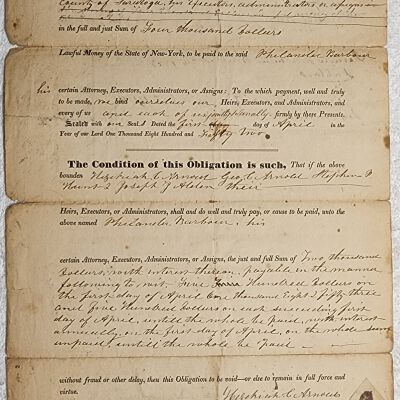 County of Saratoga, his Executors, administrators or assigns
in the full and just Sum of Four thousand Dollars
Lawful Money of the State of New-York, to be paid to the said Philander Barbour
his certain Attorney, Executors, Administrators, or Assigns: To the which payment, well and truly
to be made, we bind ourselves our Heirs, Executors, and Administrators, and
every of us and each of us jointly & severally firmly by these Presents.
Sealed with our Seals Dated the first day of April in the
Year of our Lord One Thousand Eight Hundred and Fifty Two
The Condition of this Obligation is such, That if the above
bounden Hezekiah C. Arnold Geo. C. Arnold Stephen P
Hunt & Joseph J Alden their
Heirs, Executors, or Administrators, shall and do well and truly pay, or cause to be paid, unto the
above named Philander Barbour, his
certain Attorney, Executors, Administrators, or Assigns, the just and full Sum of Two thousand
Dollars, with interest thereon, payable in the manner
following to wit, Five Hundred Dollars on
the first day of April One thousand Eight & fifty three
and five Hundred Dollars on each succeeding first
day of April, untill the whole be paid, with interest
annually, on the first day of April, on the whole sum
unpaid, untill the whole be paid
without fraud or other delay, then this Obligation to be void—or else to remain in full force and
virtue. Hezekiah C Arnold